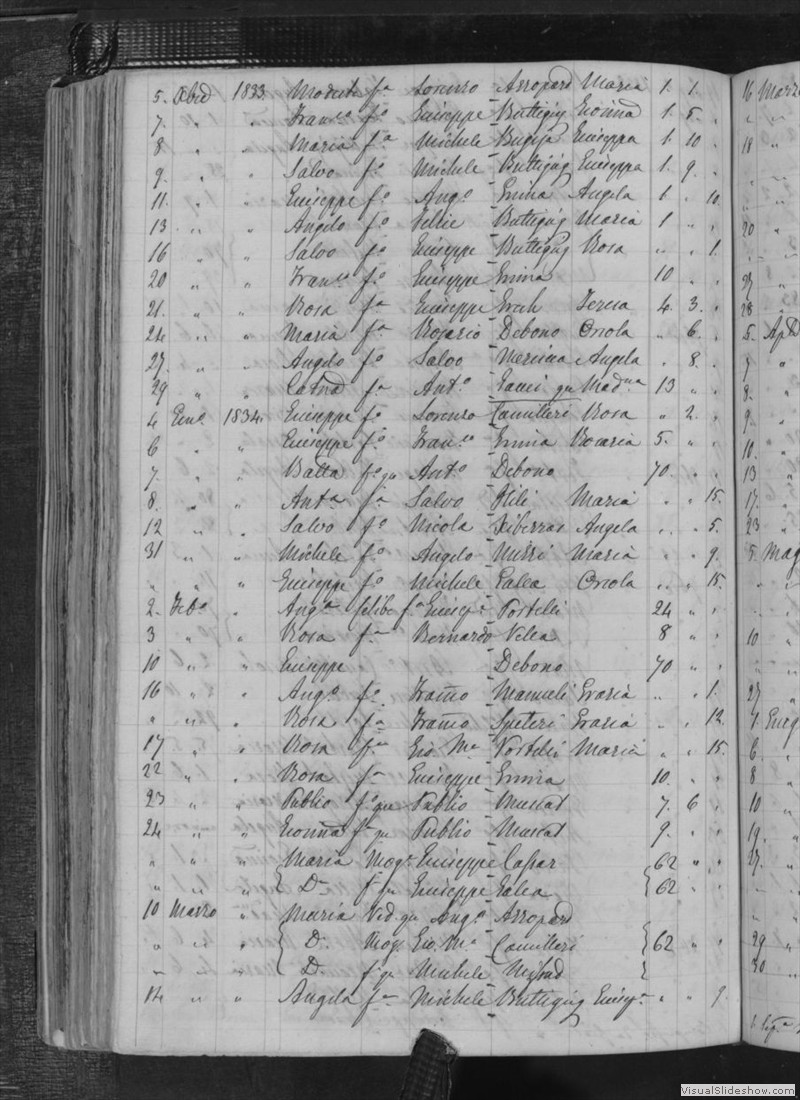 5. Xbre 1833. Modesta fa Lorenzo Azzopard Maria 1. 1.
7 " " Franco fo Giuseppe Buttigieg Gionna 1. 5. "
8 " " Maria fa Michele Bugeja Giuseppa 1. 10 "
9. " " Salvo fo Michele Buttigieg Giuseppa 1. 9. "
11. " " Giuseppe fo Ango Emina Angela 1. " 10.
13. " " Angelo fo Buttigieg Maria 1 " "
16 " " Salvo fo Giuseppe Buttigieg Rosa " " 1.
20 " " Franco fo Giuseppe Emina 10 " "
21. " " Rosa fa Giuseppe Grech Teresa 4. 3. "
24. " " Maria fa Rosario Debono Orsola " 6. "
27. " " Angelo fo Salvo Messina Angela " 8. "
29 " " fa Anto 13 " "
4 Geno 1834. Giuseppe fo Lorenzo Camilleri Rosa " 2. "
6 " " Giuseppe fo Franco Emina Rosaria 5. " "
7. " " Batta fo qu Anto Debono 70. " "
8. " " Anta fa Salvo Hili Maria " " 15.
12 " " Salvo fo Nicola Xiberras Angela " " 5.
31 " " Michele fo Angelo Mizzi Maria " " 9.
" " " Giuseppe fo Michele Galea Orsola " " 15.
2. Febo " Anga Celibe fa Giusepe Portelli 24 " "
3 " " Rosa fa Bernardo Vella 8 " "
10 " " Giuseppe Debono 70 " "
16 " " Ango fo Manueli Grazia " " 1.
" " " Rosa fa Spiteri Grazia " " 12.
17 " " Rosa fa Gio Ma Portelli Maria " " 15.
22 " " Rosa fa Giuseppe Emina 10. " "
23 " " Publio fo qu Publio Muscat 7. 6 "
24 " " Gionna fa qu Publio Muscat 9. " "
" " " Maria Moge Giuseppe Caxar 62 " "
" " " Da fa qu Giuseppe Galea 62 " "
10 Marzo " Maria Ved. qu Ango Azzopard
" " " Da Mog. Gio. Ma Camilleri 62 " "
" " " Da fa qu Michele Mifsud
14. " " Angela fa Michele Buttigieg Giusa " " 9.
16 Marzo
18
20
27
28
5. Aple
7
8.
9.
10.
13
17.
23
5. Mag
10
27
7. Giug
6.
8
10
19.
27.
29
30
VisualSlideshow.com